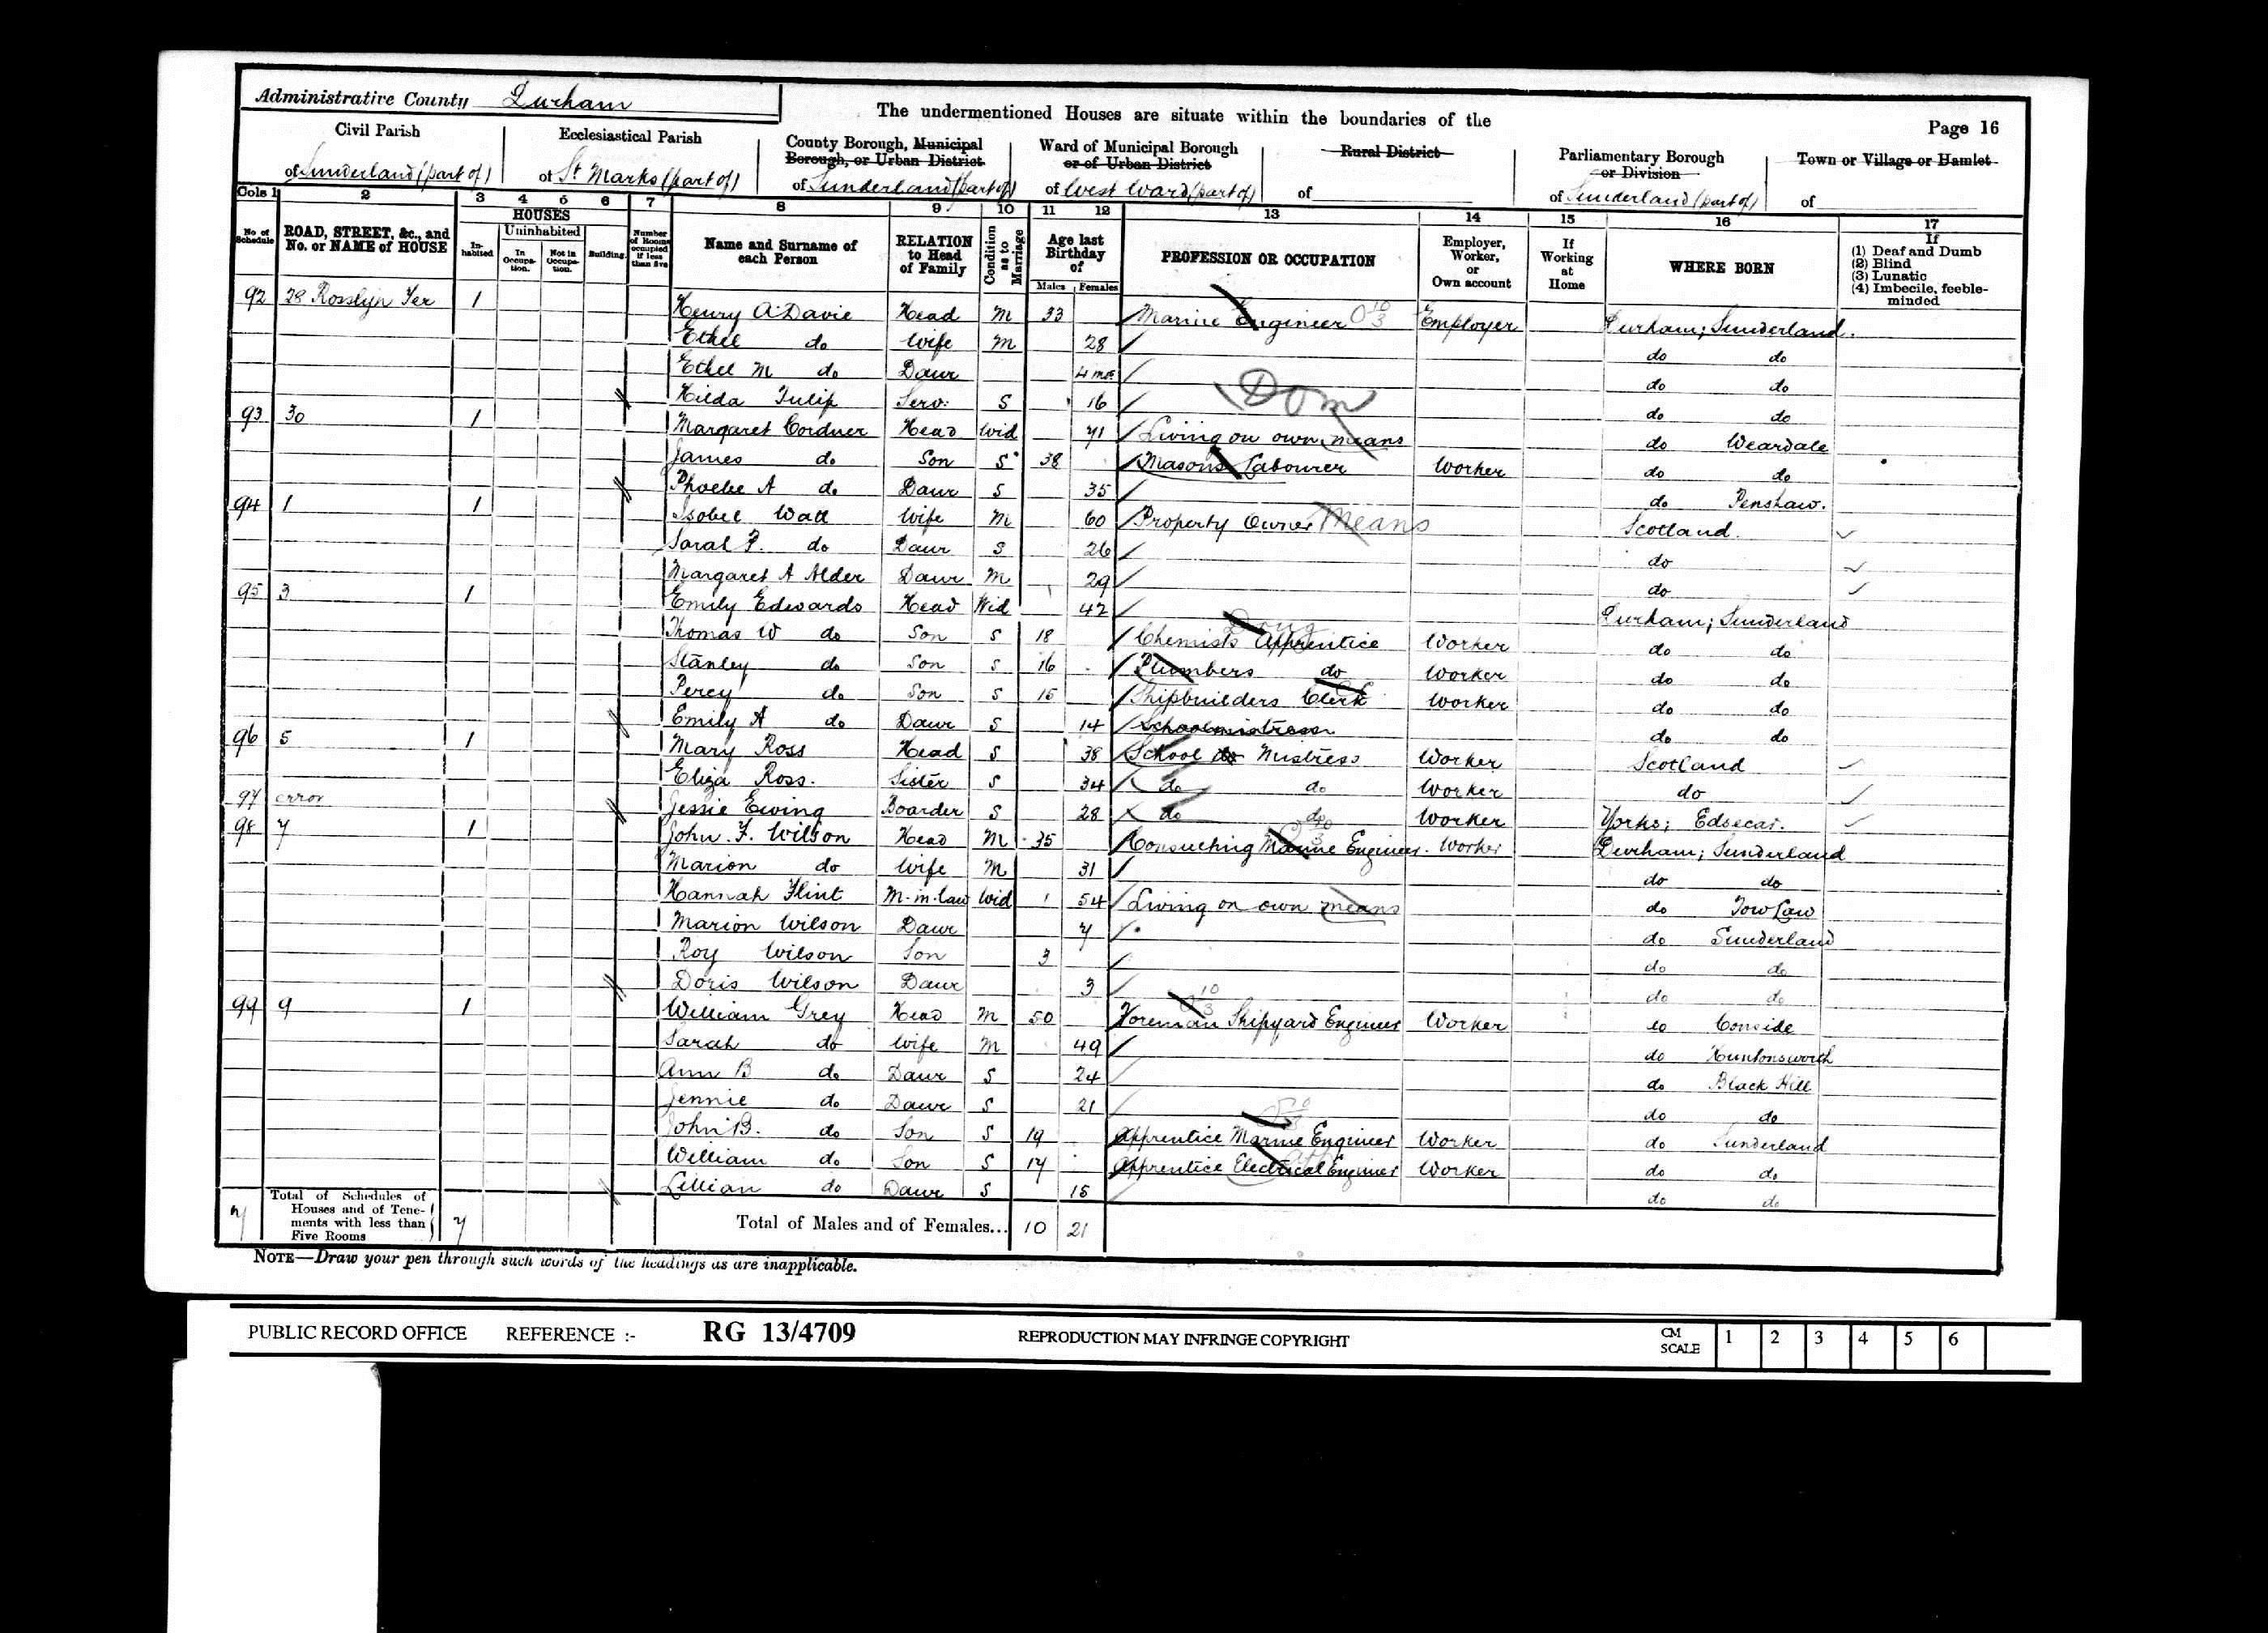 Administrative County Durham
The undermentioned Houses are situate within the boundaries of the
Page 16
Civil Parish of Sunderland (part of)
Ecclesiastical Parish of St Marks (part of)
County Borough, Municipal Borough, or Urban District of Sunderland (part of)
Ward of Municipal Borough or of Urban District of West Ward (part of)
Rural District of
Parliamentary Borough or Division of Sunderland (part of)
Town or Village or Hamlet of
Cols 1 2 3 4 5 6 7 8 9 10 11 12 13 14 15 16 17
No. of Schedule
ROAD, STREET, &c., and No. or NAME of HOUSE
HOUSES
Inhabited
Uninhabited
In Occupation.
Not in Occupation.
Building.
Number of Rooms occupied if less than five
Name and Surname of each Person
RELATION to Head of Family
Condition as to Marriage
Age last Birthday of
Males Females
PROFESSION OR OCCUPATION
Employer, Worker, or Own account
If Working at Home
WHERE BORN
If
(1) Deaf and Dumb
(2) Blind
(3) Lunatic
(4) Imbecile, feeble-minded
92 28 Rosslyn Ter 1 Henry A Davie Head M 33 Marine Engineer Employer Durham; Sunderland.
Ethel do Wife M 28 do do
Ethel M do Daur 4 mos do do
Hilda Tulip Serv: S 16 Dom do do
93 30 1 Margaret Cordner Head Wid 71 Living on own means do Weardale
James do Son S 38 Masons Labourer Worker do do
Phoebe A do Daur S 35 do Penshaw.
94 1 1 Isobel Watt Wife M 60 Property Owner Means Scotland.
Sarah F. do Daur S 26 do
Margaret A Alder Daur M 29 do
95 3 1 Emily Edwards Head Wid 42 Durham; Sunderland
Thomas W do Son S 18 Chemists Apprentice Drug Worker do do
Stanley do Son S 16 Plumbers do Worker do do
Percy do Son S 15 Shipbuilders Clerk Worker do do
Emily A do Daur S 14 Schoolmistress do do
96 5 1 Mary Ross Head S 38 School do Mistress Worker Scotland
Eliza Ross. Sister S 34 do do Worker do
97 error Jessie Ewing Boarder S 28 do do Worker Yorks;
98 7 1 John. F. Wilson Head M 35 Consulting Marine Engineer. Worker Durham; Sunderland
Marion do Wife M 31 do do
Hannah Flint M.in.law Wid 54 Living on own means do Tow Law
Marion Wilson Daur 7 do Sunderland
Roy Wilson Son 3 do do
Doris Wilson Daur 3 do do
99 9 1 William Grey Head M 50 Foreman Shipyard Engineer Worker do Conside
Sarah do Wife M 49 do Huntonsworth
Ann B do Daur S 24 do Black Hill
Jennie do Daur S 21 do do
John B. do Son S 19 Apprentice Marine Engineer Worker do Sunderland
William do Son S 17 Apprentice Electrical Engineer Worker do do
Lillian do Daur S 15 do do
7 Total of Schedules of Houses and of Tenements with less than Five Rooms 7 Total of Males and of Females... 10 21
NOTE—Draw your pen through such words of the headings as are inapplicable.
PUBLIC RECORD OFFICE REFERENCE :- RG 13/4709 REPRODUCTION MAY INFRINGE COPYRIGHT CM SCALE 1 2 3 4 5 6